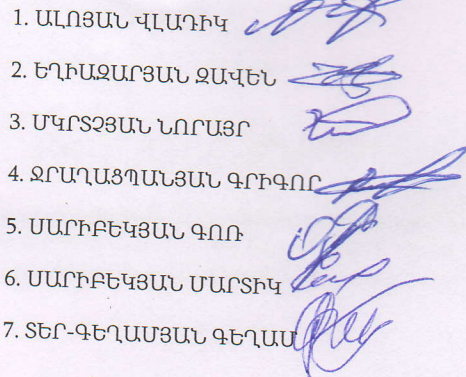 1. ԱԼՈՅԱՆ ՎԼԱԴԻԿ
2. ԵՂԻԱԶԱՐՅԱՆ ԶԱՎԵՆ
3. ՄԿՐՏՉՅԱՆ ՆՈՐԱՅՐ
4. ՋՐԱՂԱՑՊԱՆՅԱՆ ԳՐԻԳՈՐ
5. ՍԱՐԻԲԵԿՅԱՆ ԳՈՌ
6. ՍԱՐԻԲԵԿՅԱՆ ՄԱՐՏԻԿ
7. ՏԵՐ-ԳԵՂԱՄՅԱՆ ԳԵՂԱՄ